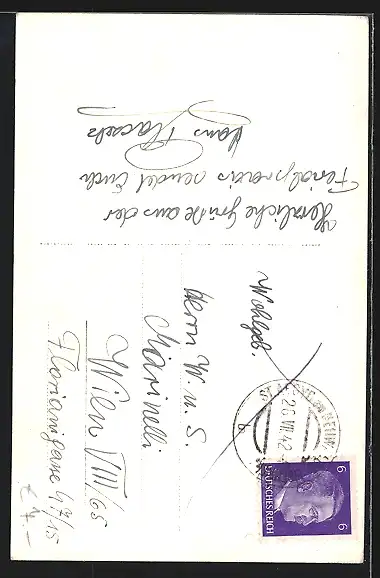 Herzliche Grüße aus der
Ferialpraxis sendet Euch
Hans
Wohlgeb.
Herrn W. u. S.
Marinelli
Wien VIII/65
Florianigasse 47/15
26.VII.42
b
6
6
DEUTSCHES REICH